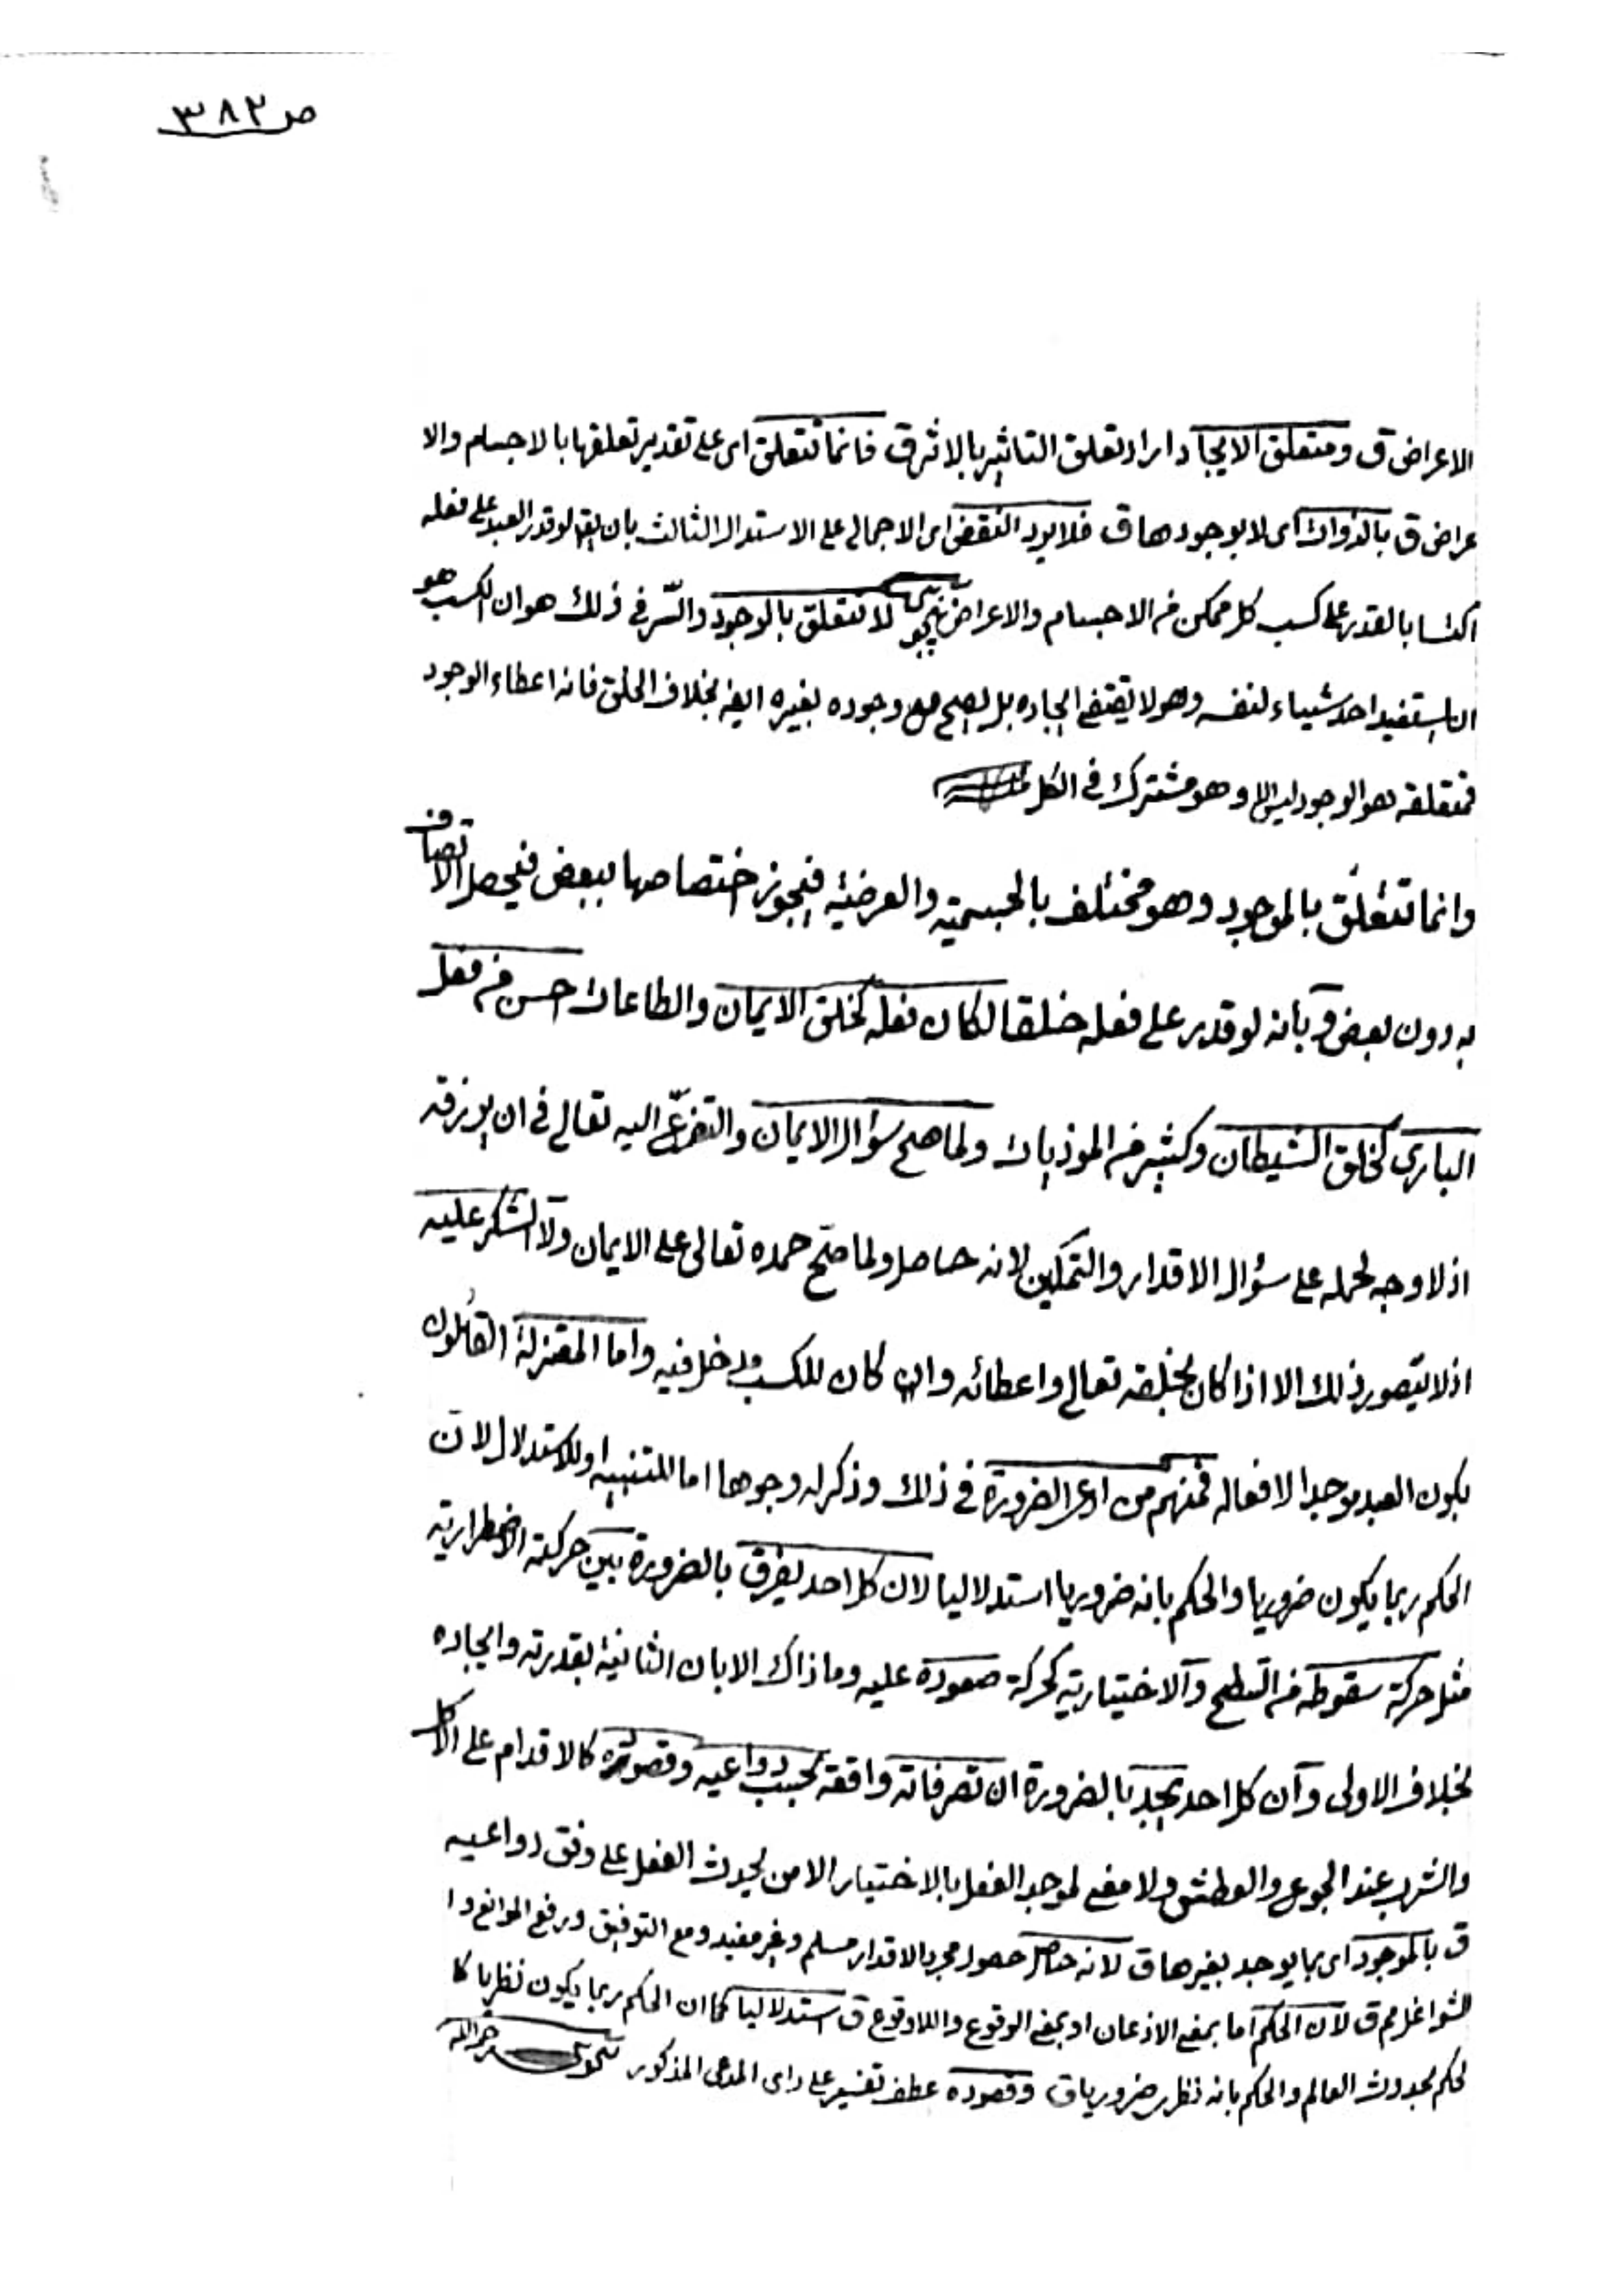 ص ٣٨٢
الاعراض ق ومتعلق الايجاد اراد تعلق التاثير بالاثر ق فانما تتعلق اى على تقدير تعلقها بالاجسام والا
عراض ق بالذوات اى لا بوجودها ق فلا يرد النقض اى الاجمالى على الاستدلال الثالث بان يقال لو قدر العبد على فعله
اكتسابا لقدر على كسب كل ممكن من الاجسام والاعراض لا تتعلق بالوجود والسّر فى ذلك هو ان الكسب هو
ان يستفيد احد شيئاء لنفسه وهو لا يقتضى ايجاده بل يصح مع وجوده بغيره ايضا بخلاف الخلق فانه اعطاء الوجود
فمتعلقه هو الوجود ليس الا وهو مشترك فى الكل
وانما تتعلق بالموجود وهو مختلف بالجسمية والعرضية فيجوز اختصاصها ببعض فيحصل الاتصاف
به دون بعض وبانه لو قدر على فعله خلقا لكان فعله كخلق الايمان والطاعات احسن من فعل
البارى كخلق الشيطان وكثير من الموذيات ولما صح سؤال الايمان والتضرّع اليه تعالى فى ان يرزقه
اذ لا وجه لحمله على سؤال الاقدار والتمكين لانه حاصل ولما صّح حمده تعالى على الايمان ولا الشكر عليه
اذ لا يتصور ذلك الا اذا كان بخلقه تعالى واعطائه وان كان للكسب مدخل فيه واما المعتزلة القائلون
بكون العبد موجدا لافعاله فمنهم من ادعى الضرورة فى ذلك وذكر له وجوها اما للتنبيه او للاستدلال لان
الحكم ربما يكون ضروريا والحكم بانه ضروريا استدلاليا لان كل احد يفرق بالضرورة بين حركته الاضطرارية
مثل حركة سقوطه من السطح والاختيارية كحركة صعوده عليه وما ذاك الا بان الثانية بقدرته وايجاده
بخلاف الاولى وان كل احد يجد بالضرورة ان تصرفاته واقعة بحسب دواعيه وقصوده كالاقدام على الاكل
والشرب عند الجوع والعطش ولا معنى لموجد الفعل بالاختيار الا من يحدث الفعل على وفق دواعيه
ق بالموجود اى بما يوجد بغيرها ق لانه حاصل حصول مجرد الاقدار مسلم وغير مفيد ومع التوفيق ورفع الموانع وا
لشواغل مم ق لان الحكم اما بمعنى الاذعان او بمعنى الوقوع واللاوقوع ق استدلاليا كما ان الحكم ربما يكون نظريا كا
لحكم بحدوث العالم والحكم بانه نظرى ضروريا ق وقصوده عطف تفسير على داى المدعى المذكور